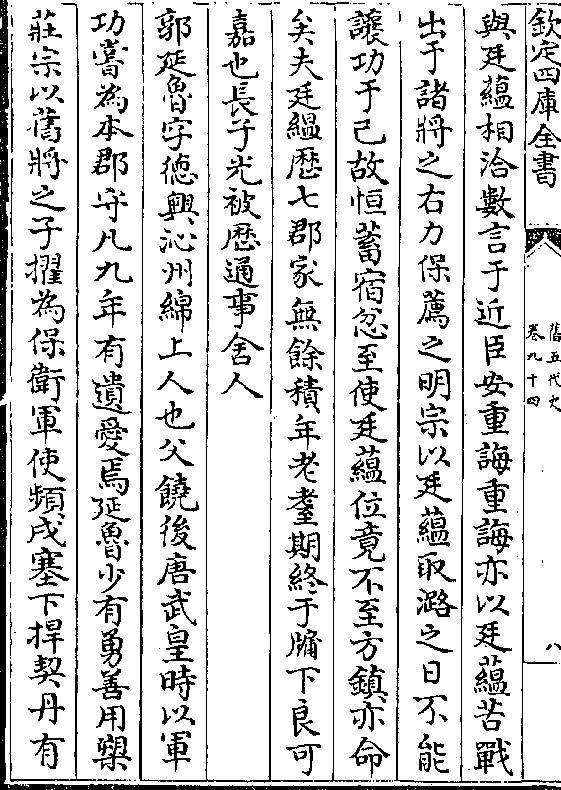 欽定四庫全書
舊五代史
卷九十四
八
與廷藴相洽數言于近臣安重誨重誨亦以廷藴苦戰
出于諸將之右力保薦之明宗以廷藴取潞之日不能
讓功于己故恒蓄宿忿至使廷藴位竟不至方鎮亦命
矣夫廷緼歴七郡家無餘積年老耄期終于牖下良可
嘉也長子光被歴通事舍人
郭延魯字德興沁州綿上人也父饒後唐武皇時以軍
功嘗為本郡守凡九年有遺愛焉延魯少有勇善用槊
莊宗以舊將之子擢為保衛軍使頻戍塞下捍契丹有